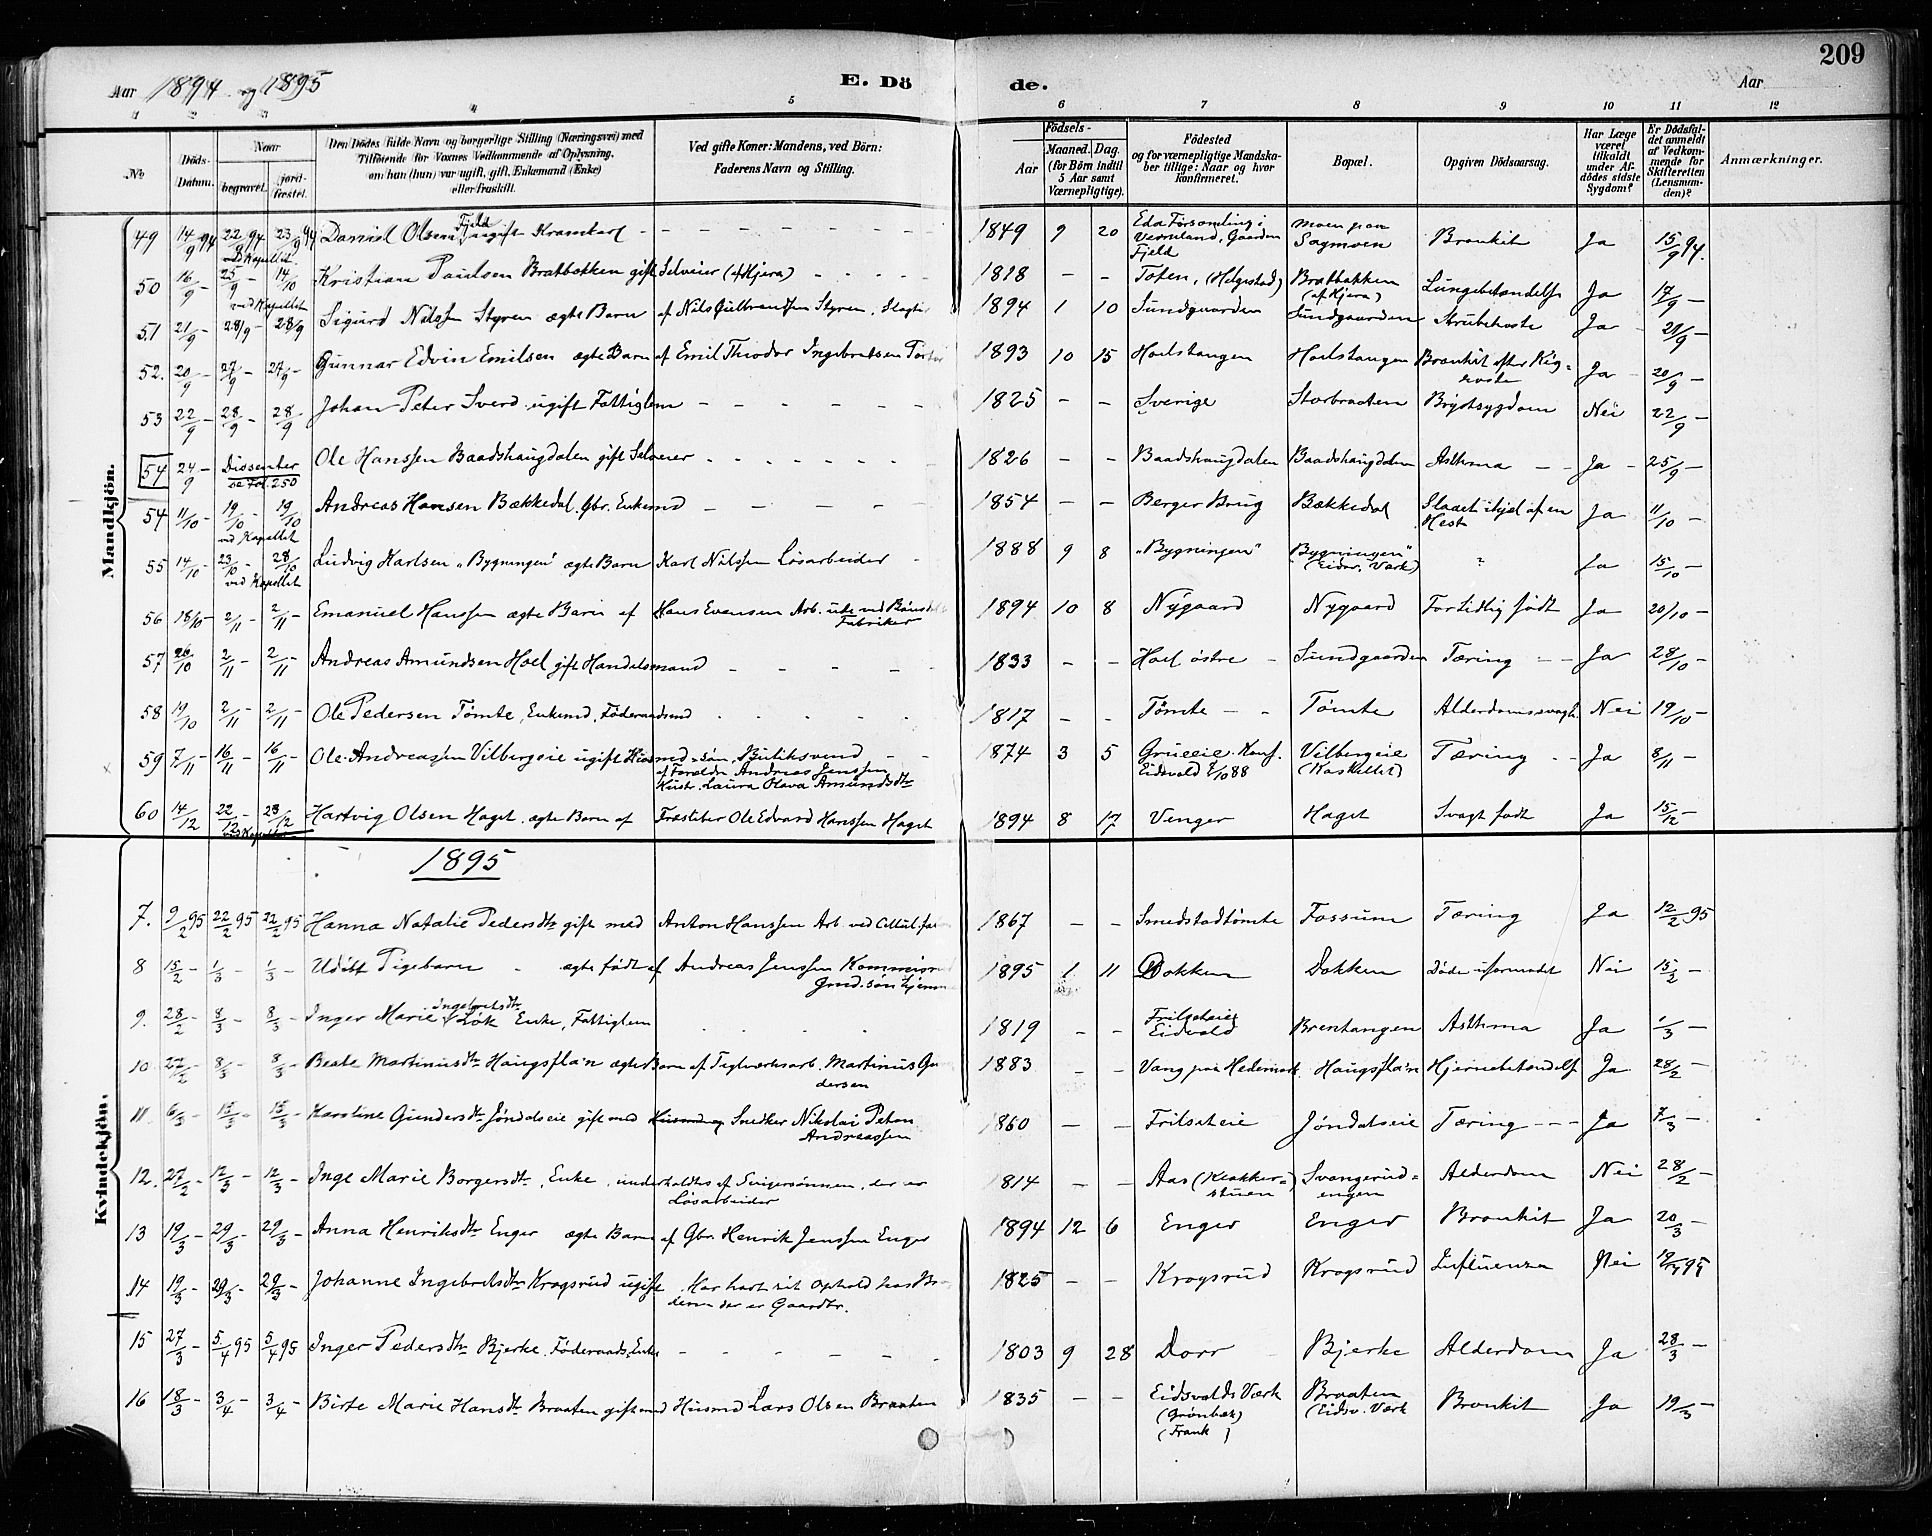 209
Aar 1894 og 1895 E. Dö de. Aar
1 2 3 4 5 6 7 8 9 10 11 12
No Döds-Datum. Naar begravet. jord-fæstet. Den Dödes fulde Navn og borgerlige Stilling (Næringsvei) med Tilföiende for Voxnes Vedkommende af Oplysning. om han (hun) var ugift, gift, Enkemand (Enke) eller fraskilt. Ved gifte Koner: Mandens, ved Börn: Faderens Navn og Stilling. Födsels- Aar Maaned. Dag. (for Börn indtil 5 Aar samt Værnepligtige). Födested og for værnepligtige Mandska-ber tillige: Naar og hvor konfirmeret. Bopæl. Opgiven Dödsaarsag. Har Læge været tilkaldt under Af-dödes sidste Sygdom? Er Dödsfal-det anmeldt af Vedkom-mende for Skifteretten (Lensman-den)? Anmærkninger.
Mandkjön.
49 14/9 94 22/9 94 ved Kapellet 23/9 94 Daniel Olsen Fjeld ugift Kramkarl 1849 9 20 Eda Forsamling i Vermland, Gaarden Fjeld Moen paa Sagmoen Bronkit Ja 15/9 94.
50 16/9 - 25/9 - ved Kapellet 14/10 Kristian Paulsen Bratbakken gift Selveier (af Hjera) 1818 - - Toten, (Helgestad) Bratbakken (af Hjera) Lungebetændelse Ja 17/9 -
51 21/9 - 28/9 - 28/9 Sigurd Nilssen Styren ægte Barn af Nils Gulbrandsen Styren, Slagter 1894 1 10 Sundgaarden Sundgaarden Strubehoste Ja 21/9 -
52. 20/9 - 27/9 - 27/9 - Gunnar Edvin Emilsen ægte Barn af Emil Theodor Ingebretsen 1893 10 15 Hoelstangen Hoelstangen Bronkit efter Kig-hoste Ja 20/9 -
53 22/9 - 28/9 - 28/9 Johan Peter Sverd ugift Fattiglem 1825 - - Sverige Storbraaten Brystsygdom Nei 22/9 -
54 24/9 - Dissenter se Fol. 250 Ole Hanssen Baadshaugdalen gift Selveier 1826 - - Baadshaugdalen Baadshaugdalen Asthma Ja 25/9 -
54 11/10 - 19/10 - ved Kapellet 19/10 Andreas Hansen Bækkedal. Gbr. Enkemd 1854 - - Berger Brug Bækkedal Slaaet ihjel af en Hest Ja 11/10 -
55 14/10 - 23/10 - ved Kapellet 28/10 Ludvig Karlsen "Bygningen" ægte Barn Karl Nilssen Løsarbeider 1888 9 8 "Bygningen" Bygningen" (Eidsv. Værk) " Ja 15/10 -
56 18/10 - 2/11 - 2/11 Emanuel Hanssen ægte Barn af Hans Evensen Arb. ude ved Bøns Fabriker 1894 10 8 Nygaard Nygaard For tidlig født Ja 20/10 -
57 26/10 2/11 - 2/11 - Andreas Amundsen Hoel gift Handelsmand 1833 - - Hoel østre Sundgaarden Tæring Ja 28/10 -
58 19/10 2/11 - 2/11 - Ole Pedersen Tømte, Enkemd, Føderaadsmd 1817 - - Tømte Tømte Alderdomssvagh. Nei 19/10 -
59 7/11 16/11 - 16/11 - Ole Andreassen Vilbergeie ugift Husmd-søn, Butiksvend af Foreldre Andreas Jenssen Hustr. Laura Olava Amundsdtr 1874 3 5 Grueeie. Konf. Eidsvold 2/10 88 Vilbergeie (Kaskellet) Tæring Ja 8/11 -
60 14/12 22/12 ved Kapellet 23/12 Hartvig Olsen Haget ægte Barn af Træsliber Ole Edvard Hanssen Haget 1894 8 17 Venger Haget Svagt født Ja 15/12 -
1895
Kvindekjön.
7. 9/2 95 22/2 95 22/2 95 Hanna Natalie Pedersdtr gift med Anton Hanssen Arb. ved Cellul.fa 1867 - - Smedstadtømte Fossum Tæring Ja 12/2 95
8 15/2 - 1/3 - 1/3 - Udøbt Pigebarn ægte født af Andreas Jenssen Grud.søn hjemme 1895 1 11 Dokken Dokken Døde uformodet Nei 15/2 -
9. 28/2 - 8/3 - 8/3 - Inger Marie Ingebretsdtr Løk Enke, Fattiglem 1819 - - Frilseteie Eidsvold Brentangen Asthma Ja 1/3 -
10 27/2 - 8/3 - 8/3 - Beate Martinusdtr Haugsfla'n ægte Barn af Teglværksarb. Martinus Gundersen 1883 - - Vang paa Hedemark. Haugsfla'n Hjernebetændelse Ja 28/2 -
11 6/3 - 15/3 - 15/3 - Karoline Gundersdtr Jøndalseie gift med Husmd og Snedker Nikolai Peter Andreassen 1860 - - Frilseteie Jøndalseie Tæring Ja 7/3 -
12. 27/2 - 12/3 - 12/3 - Inge Marie Borgersdtr, Enke, underholdtes af Svigersønnen, der er Løsarbeider 1814 - - Aas (Klokker-stuen) Svangerud-engen Alderdom Nei 28/2 -
13 19/3 - 29/3 - 29/3 - Anna Henriksdtr Enger ægte Barn af Gbr. Henrik Jenssen Enger 1894 12 6 Enger Enger Bronkit Ja 20/3 -
14 19/3 - 29/3 - 29/3 - Johanne Ingebretsdtr Krogsrud ugift Har havt sit Ophold hos Broderen der er Gaardbr. 1825 - - Krogsrud Krogsrud Influenza Nei 19/4 95
15 27/3 - 5/4 95 5/4 95 Inger Pedersdtr Bjerke. Føderaads Enke 1803 9 28 Dorr Bjerke Alderdom Ja 28/3 -
16 18/3 - 3/4 - 3/4 - Birte Marie Hansdtr Braaten gift med Husmd Lars Olsen Braaten 1835 - - Eidsvolds Værk (Grønbæk) (Frank) Braaten (Eidsv. Værk Bronkit Ja 19/3 -